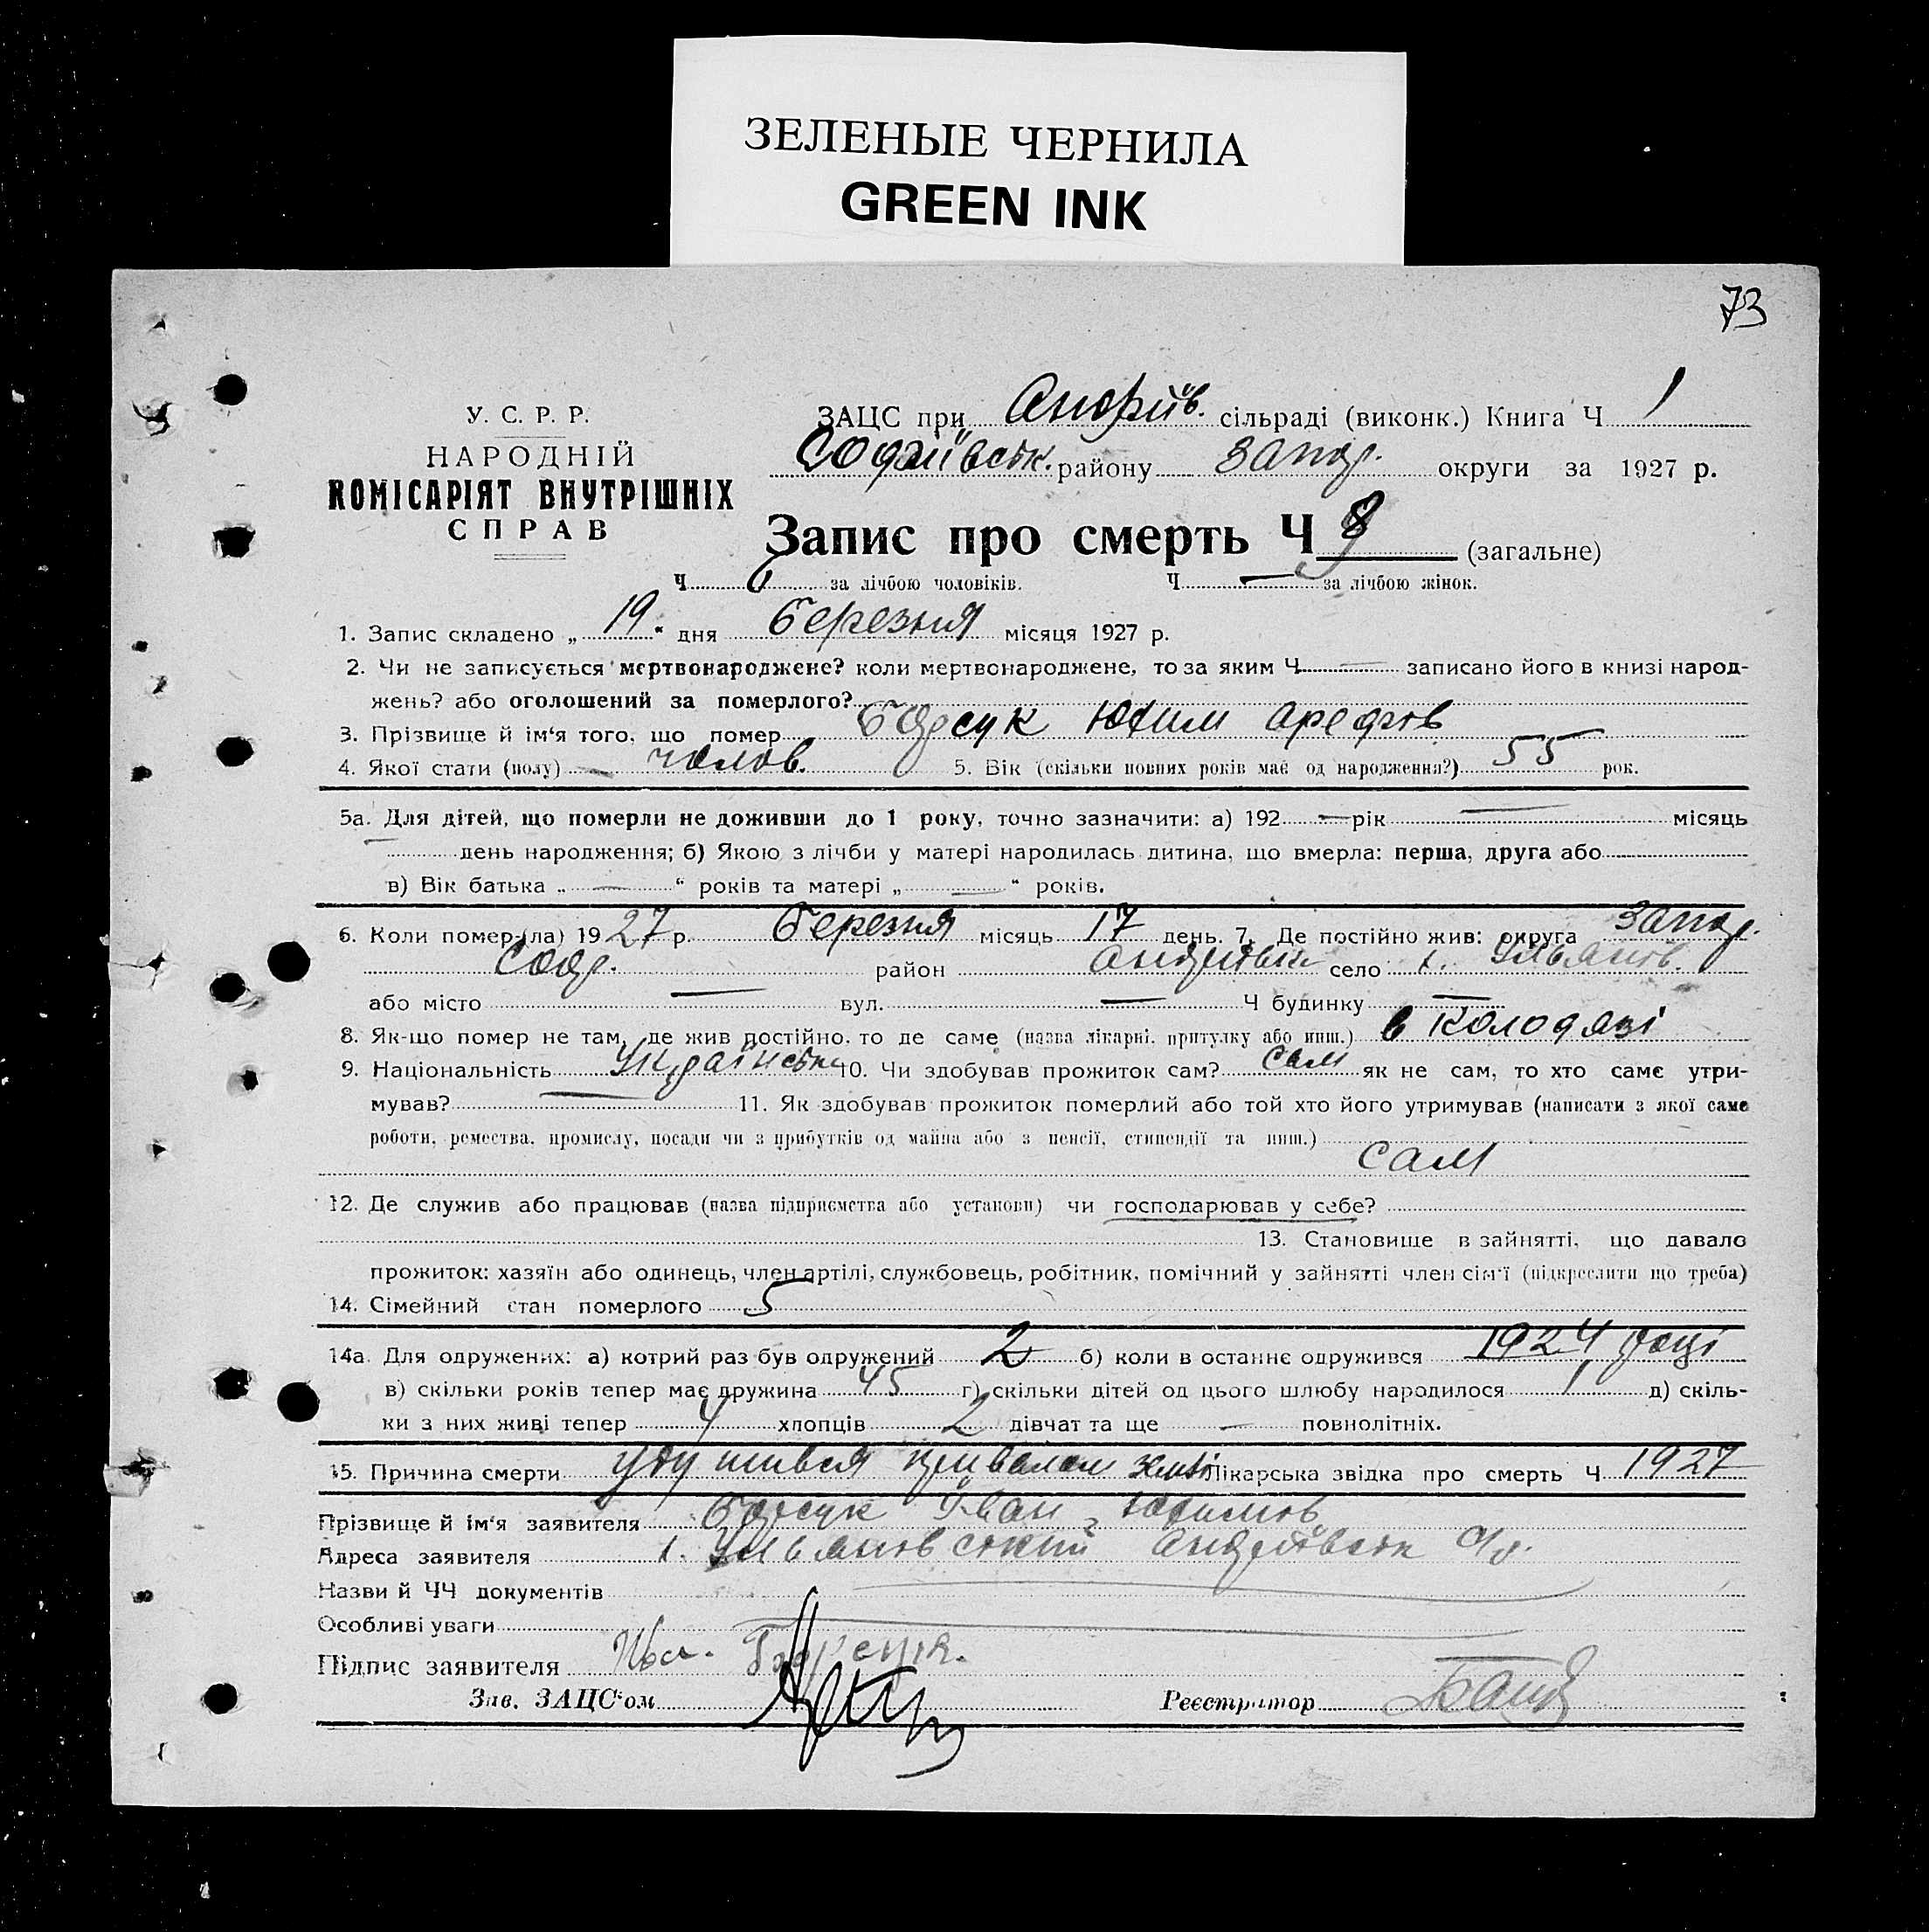 ЗЕЛЕНЫЕ ЧЕРНИЛА
GREEN INK
73
У. С. Р. Р.
НАРОДНІЙ
КОМІСАРІЯТ ВНУТРІШНІХ
СПРАВ
ЗАЦС при Андріїв. сільраді (виконк.) Книга Ч 1
Софіївськ. району Запор. округи за 1927 р.
Запис про смерть Ч 8 (загальне)
Ч 6 за лічбою чоловіків. Ч — за лічбою жінок.
1. Запис складено „ 19 “ дня березня місяця 1927 р.
2. Чи не записується мертвонароджене? коли мертвонароджене, то за яким Ч — записано його в книзі народ-
жень? або оголошений за померлого?
3. Прізвище й ім'я того, що помер Борсук Юхим
4. Якої стати (полу) — чолов. 5. Вік (скільки повних років має од народження?) 55 рок.
5а. Для дітей, що померли не доживши до 1 року, точно зазначити: а) 192 — рік — місяць
— день народження; б) Якою з лічби у матері народилась дитина, що вмерла: перша, друга або
в) Вік батька „ — “ років та матері „ — “ років.
6. Коли помер (ла) 1927 р. березня місяць 17 день. 7. Де постійно жив: округа Запор.
Соф. район Андріївки село х. Ульянов.
або місто — вул. — Ч будинку —
8. Як-що помер не там, де жив постійно, то де саме (назва лікарні, притулку або инш.) в колодязі
9. Національність Українська 10. Чи здобував прожиток сам? сам як не сам, то хто саме утри-
мував? — 11. Як здобував прожиток померлий або той хто його утримував (написати з якої саме
роботи, ремества, промислу, посади чи з прибутків од майна або з пенсії, стипендії та инш.)
сам
12. Де служив або працював (назва підприємства або установи) чи господарював у себе?
13. Становище в зайнятті, що давало
прожиток: хазяїн або одинець, член артілі, службовець, робітник, помічний у зайнятті член сім'ї (підкреслити що треба)
14. Сімейний стан померлого 5
14а. Для одружених: а) котрий раз був одружений 2 б) коли в останнє одружився 1924 році
в) скільки років тепер має дружина 45 г) скільки дітей од цього шлюбу народилося 1 д) скіль-
ки з них живі тепер 4 хлопців 2 дівчат та ще — повнолітніх.
15. Причина смерти удушився привалом землі Лікарська звідка про смерть Ч 1927
Прізвище й ім'я заявителя Борсук Іван Юхимов
Адреса заявителя х. Ульяновський Андріївськ с/р.
Назви й ЧЧ документів
Особливі уваги
Підпис заявителя
Зав. ЗАЦС'ом
Реєстратор